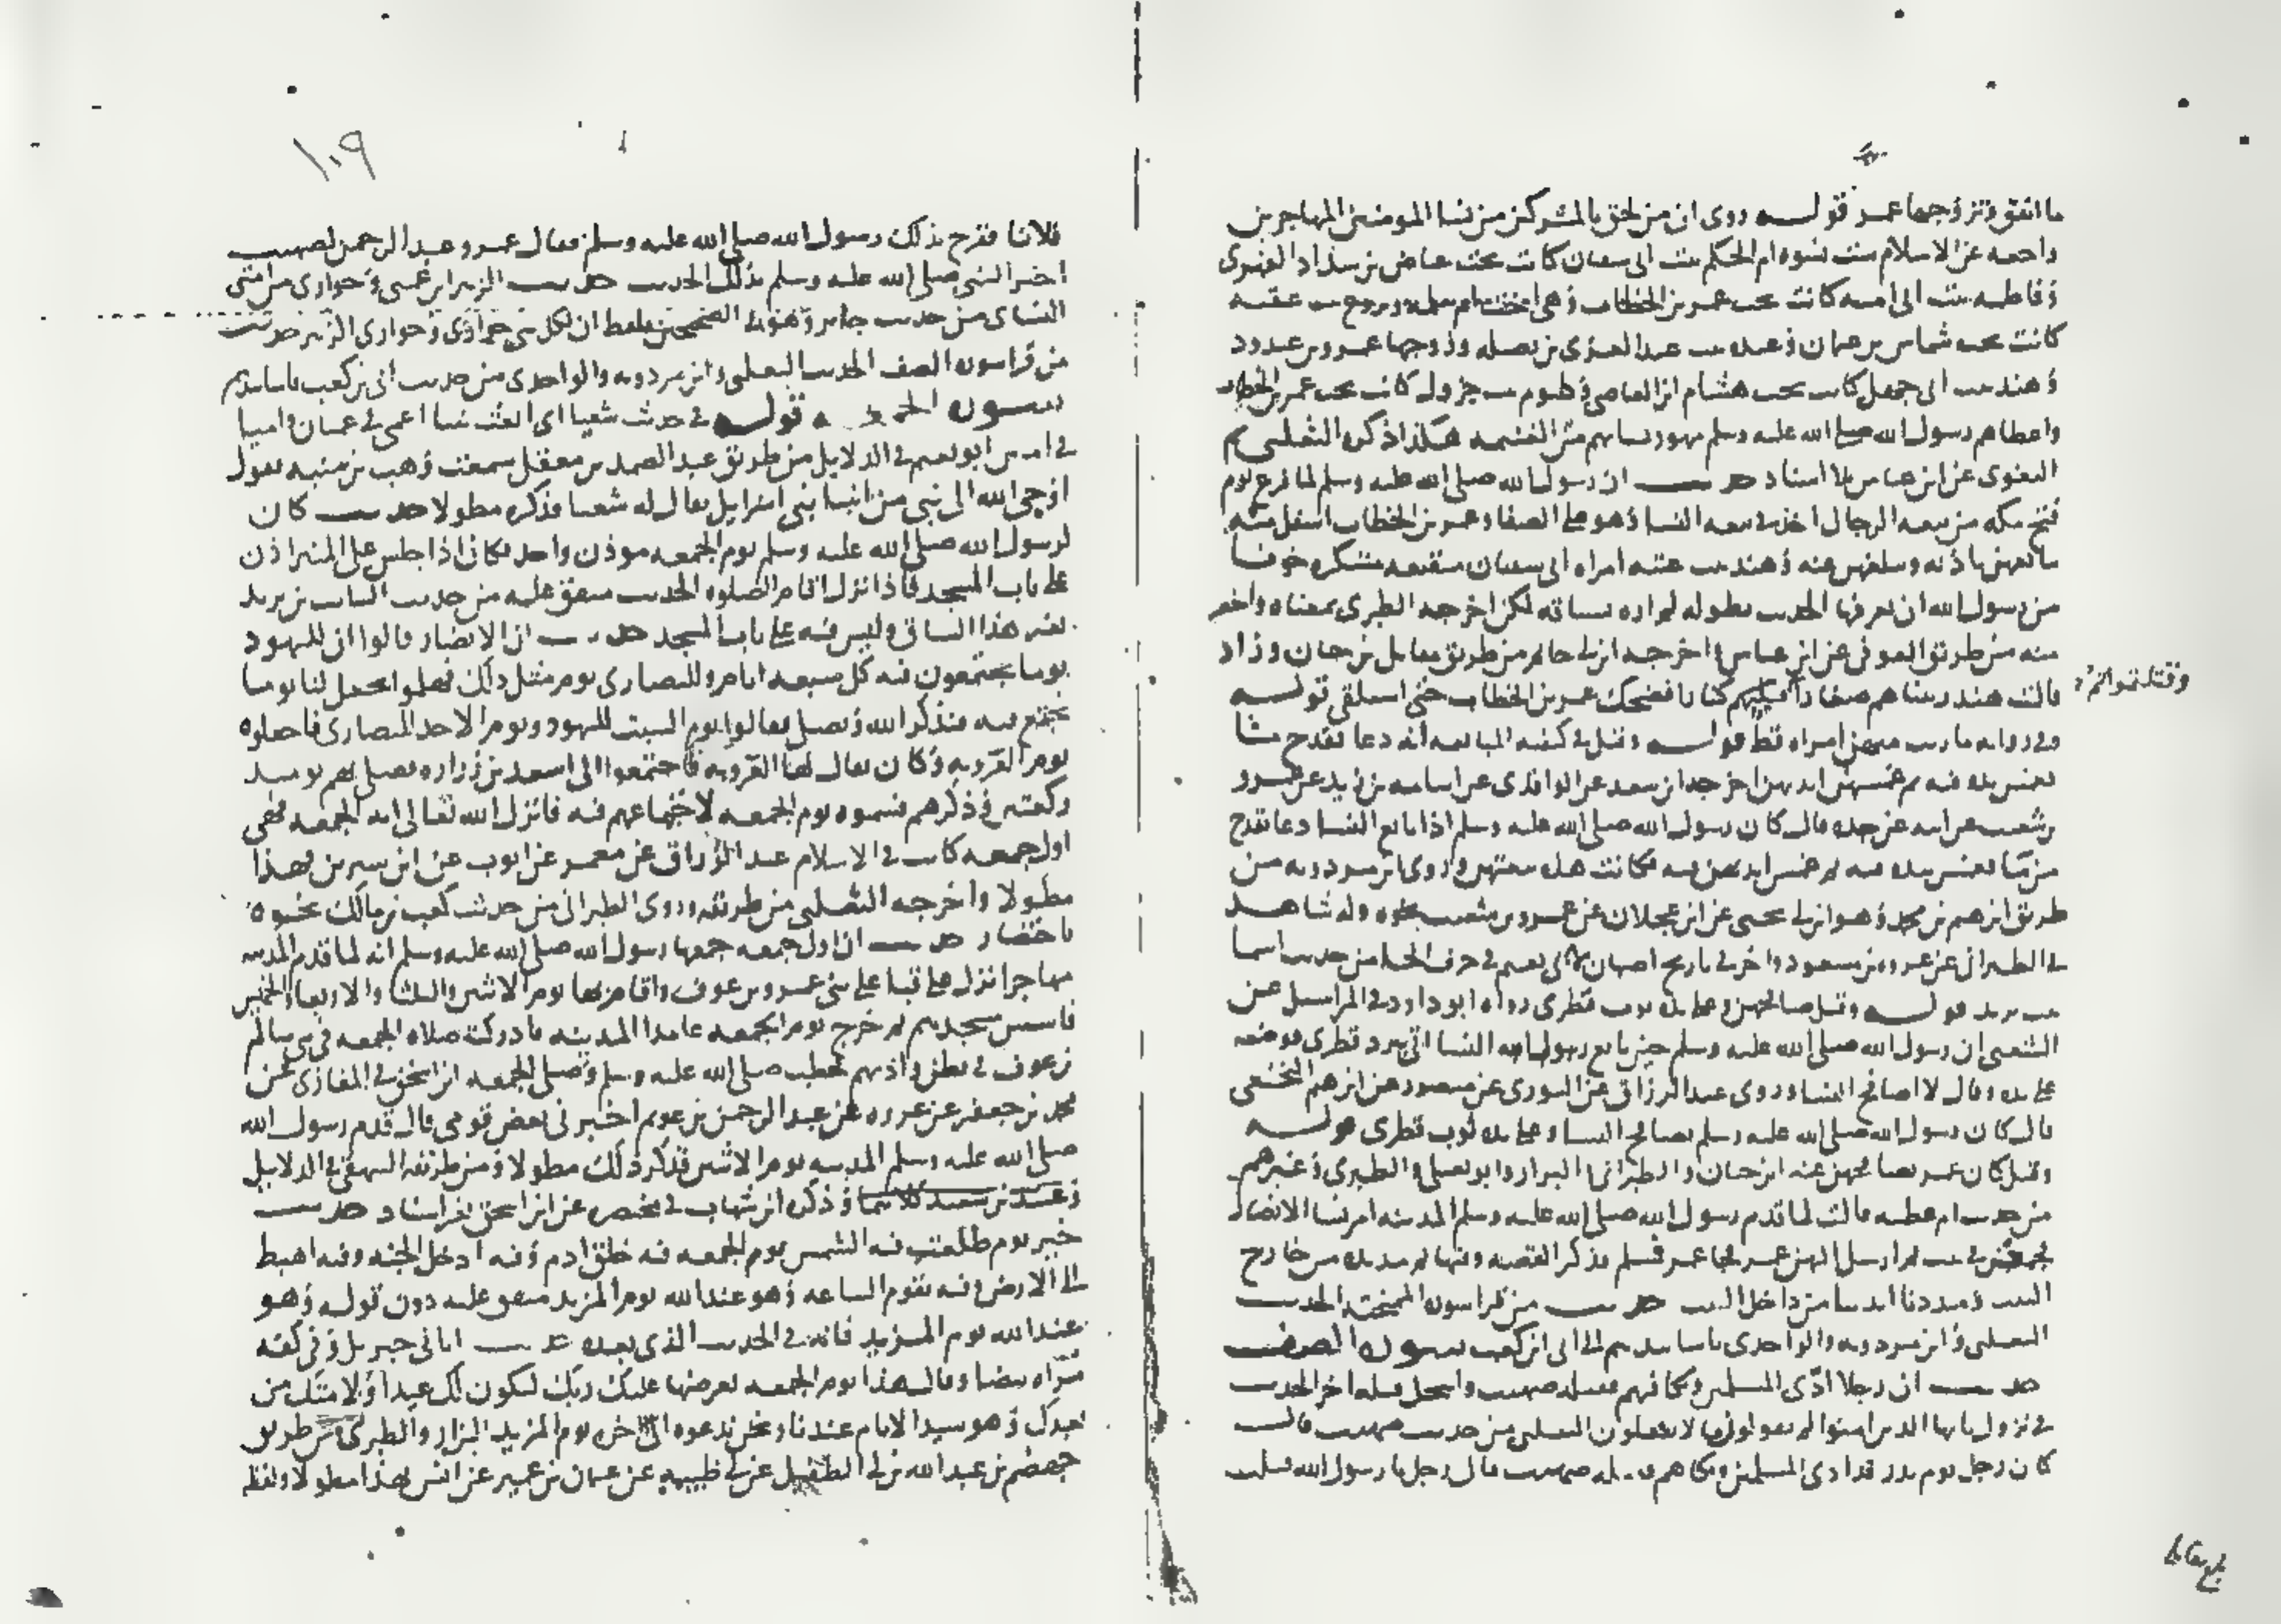 ما انفق وتزوجها عمر قوله روى ان من لحق بالمشركين من نسا المومنين المهاجرين
راجعه عن الاسلام ست نسوه ام الحكم بنت ابى سفيان كانت تحت عياض بن شداد الفهرى
وفاطمه بنت ابى اميه كانت تحت عمر بن الخطاب وهى اخت ام سلمه وبروع بنت عقبه
كانت تحت شماس بن عثمان وعبده بنت عبد العزى بن نضله وزوجها عمرو بن عبد ود
وهند بنت ابى جهل كانت تحت هشام بن العاصى وكلثوم بنت جرول كانت تحت عمر بن الخطاب
واعطاهم رسول الله صلى الله عليه وسلم مهور نسايهم من الغنيمه هكذا ذكره الثعلبى ثم
البغوى عن ابن عباس بلا اسناد حديث ان رسول الله صلى الله عليه وسلم لما فرغ يوم
فتح مكه من بيعه الرجال اخذ فى بيعه النسا وهو على الصفا وعمر بن الخطاب اسفل منه
يبايعهن باذنه ويبلغهن عنه وهند بنت عتبه امراه ابى سفيان متقنعه متنكره خوفا
من رسول الله ان يعرفها الحديث بطوله لم اره بسياقه لكن اخرجه الطبرى بمعناه واخصر
منه من طريق العوفى عن ابن عباس واخرجه ابن ابى حاتم من طريق مقاتل بن حيان وزاد
قالت هند ربيناهم صغارا كبارا فضحك عمر بن الخطاب حتى استلقى قوله
وقتلتموهم
وفى روايه ما مست منهن امراه قط قوله وقيل فى كيفيه المبايعه انه دعا بقدح من ما
فغمس يده فيه ثم غمسهن ايديهن اخرجه ابن سعد عن الواقدى عن اسامه بن زيد عن عمرو
بن شعيب عن ابيه عن جده قال كان رسول الله صلى الله عليه وسلم اذا بايع النسا دعا بقدح
من ما فغمس يده فيه ثم يغمس ايديهن فيه فكانت هذه بيعتهن وروى ابن مردويه من
طريق ابرهيم بن محمد وهو ابن ابى يحيى عن ابن عجلان عن عمرو بن شعيب نحوه وله شاهد
فى الطبرانى عن عروه بن مسعود واخر فى تاريخ اصبهان لابى نعيم فى حرف الحا من حديث اسما
بنت يزيد قوله وقيل صافحهن وعلى يده ثوب قطرى رواه ابو داود فى المراسيل عن
الشعبى ان رسول الله صلى الله عليه وسلم حين بايع النسا اتى ببرد قطرى فوضعه
على يده وقال لا اصافح النسا وروى عبد الرزاق عن الثورى عن منصور عن ابرهيم النخعى
قال كان رسول الله صلى الله عليه وسلم يصافح النسا وعلى يده ثوب قطرى قوله
وقيل كان عمر يصافحهن عنه ابن حبان والطبرانى والبزار وابو يعلى والطبرى وغيرهم
من حديث ام عطيه قالت لما قدم رسول الله صلى الله عليه وسلم المدينه امر نسا الانصار
فجمعهن فى بيت ثم ارسل اليهن عمر فجا عمر فسلم فذكر القصه وفيها ثم مد يده من خارج
البيت ومددنا ايدينا من داخل البيت حديث من قرا سوره الممتحنه الحديث
الثعلبى وابن مردويه والواحدى باسانيدهم الى ابى بن كعب سوره الصف
حديث ان رجلا اذى المسلمين ونكا فيهم فقتله صهيب وانتحل قتله اخر الحديث
فى نزول يا ايها الذين امنوا لم تقولون ما لا تفعلون الثعلبى من حديث صهيب قال
كان رجل يوم بدر قد اذى المسلمين ونكاهم فقتله صهيب فقال رجل يا رسول الله قتلت
١٠٩
فلانا ففرح بذلك رسول الله صلى الله عليه وسلم فقال عمر وعبد الرحمن لصهيب
اخبر النبى صلى الله عليه وسلم بذلك الحديث حديث الزبير ابن عمتى وحوارى من امتى
النساى من حديث جابر وهو فى الصحيحين بلفظ ان لكل نبى حوارى وحوارى الزبير حديث
من قرا سوره الصف الحديث الثعلبى وابن مردويه والواحدى من حديث ابى بن كعب باسانيدهم
سوره الجمعه قوله فى حديث شعيا اى ابعث نبيا اعمى فى عميان واميا
فى اميين ابو نعيم فى الدلايل من طريق عبد الصمد بن معقل سمعت وهب بن منبه يقول
اوحى الله الى نبى من انبيا بنى اسرايل يقال له شعيا فذكره مطولا حديث كان
لرسول الله صلى الله عليه وسلم يوم الجمعه موذن واحد فكان اذا جلس على المنبر اذن
على باب المسجد فاذا نزل اقام الصلوه الحديث متفق عليه من حديث السايب بن يزيد
بغير هذا السياق وليس فيه على باب المسجد حديث ان الانصار قالوا ان لليهود
يوما يجتمعون فيه كل سبعه ايام وللنصارى يوم مثل ذلك فهلموا نجعل لنا يوما
نجتمع فيه فنذكر الله ونصلى فقالوا يوم السبت لليهود ويوم الاحد للنصارى فاجعلوه
يوم العروبه وكان يقال لها العروبه فاجتمعوا الى اسعد بن زراره فصلى بهم يوميذ
ركعتين وذكرهم فسموه يوم الجمعه لاجتماعهم فيه فانزل الله تعالى ايه الجمعه فهى
اول جمعه كانت فى الاسلام عبد الرزاق عن معمر عن ايوب عن ابن سيرين بهذا
مطولا واخرجه الثعلبى من طريقه وروى الطبرانى من حديث كعب بن مالك نحوه
باختصار حديث ان اول جمعه جمعها رسول الله صلى الله عليه وسلم انه لما قدم المدينه
مهاجرا نزل على قبا على بنى عمرو بن عوف واقام بها يوم الاثنين والثلثا والاربعا والخميس
فاسس مسجدهم ثم خرج يوم الجمعه عامدا المدينه فادركت صلاه الجمعه فى بنى سالم
بن عوف فى بطن واديهم فخطب صلى الله عليه وسلم وصلى الجمعه ابن اسحق فى المغازى عن
محمد بن جعفر عن عروه عن عبد الرحمن بن عويم اخبرنى بعض قومى قال قدم رسول الله
صلى الله عليه وسلم المدينه يوم الاثنين فذكر ذلك مطولا ومن طريقه البيهقى فى الدلايل
وذكره ابن شهاب فى مختصره عن ابن اسحق بغير اسناد حديث
خير يوم طلعت فيه الشمس يوم الجمعه فيه خلق ادم وفيه ادخل الجنه وفيه اهبط
الى الارض وفيه تقوم الساعه وهو عند الله يوم المزيد متفق عليه دون قوله وهو
عند الله يوم المزيد فانه فى الحديث الذى بعده حديث اتانى جبريل وفى كفه
مراه بيضا وقال هذا يوم الجمعه يعرضها عليك ربك لتكون لك عيدا ولامتك من
بعدك وهو سيد الايام عندنا ونحن ندعوه الى الاخره يوم المزيد البزار والطبرى من طريق
جهضم بن عبد الله بن ابى الطفيل عن ابى ظبيه عن عثمان بن عمير عن انس بهذا مطولا ولفظ